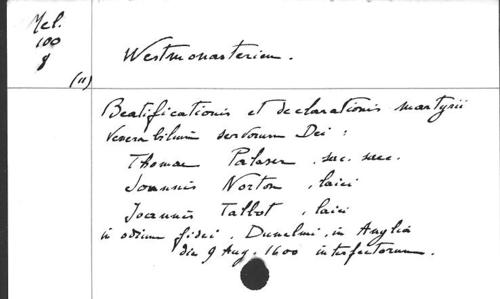 Mel.
100
8
(11)
Westmonasterien.
Beatificationis et declarationis martyrii
Venerabilium servorum Dei :
Thomae Palaser , sac. saec.
Joannis Norton , laici
Joannis Talbot , laici
in odium fidei , Dunelmi, in Anglia
die 9 Aug. 1600 interfectorum.